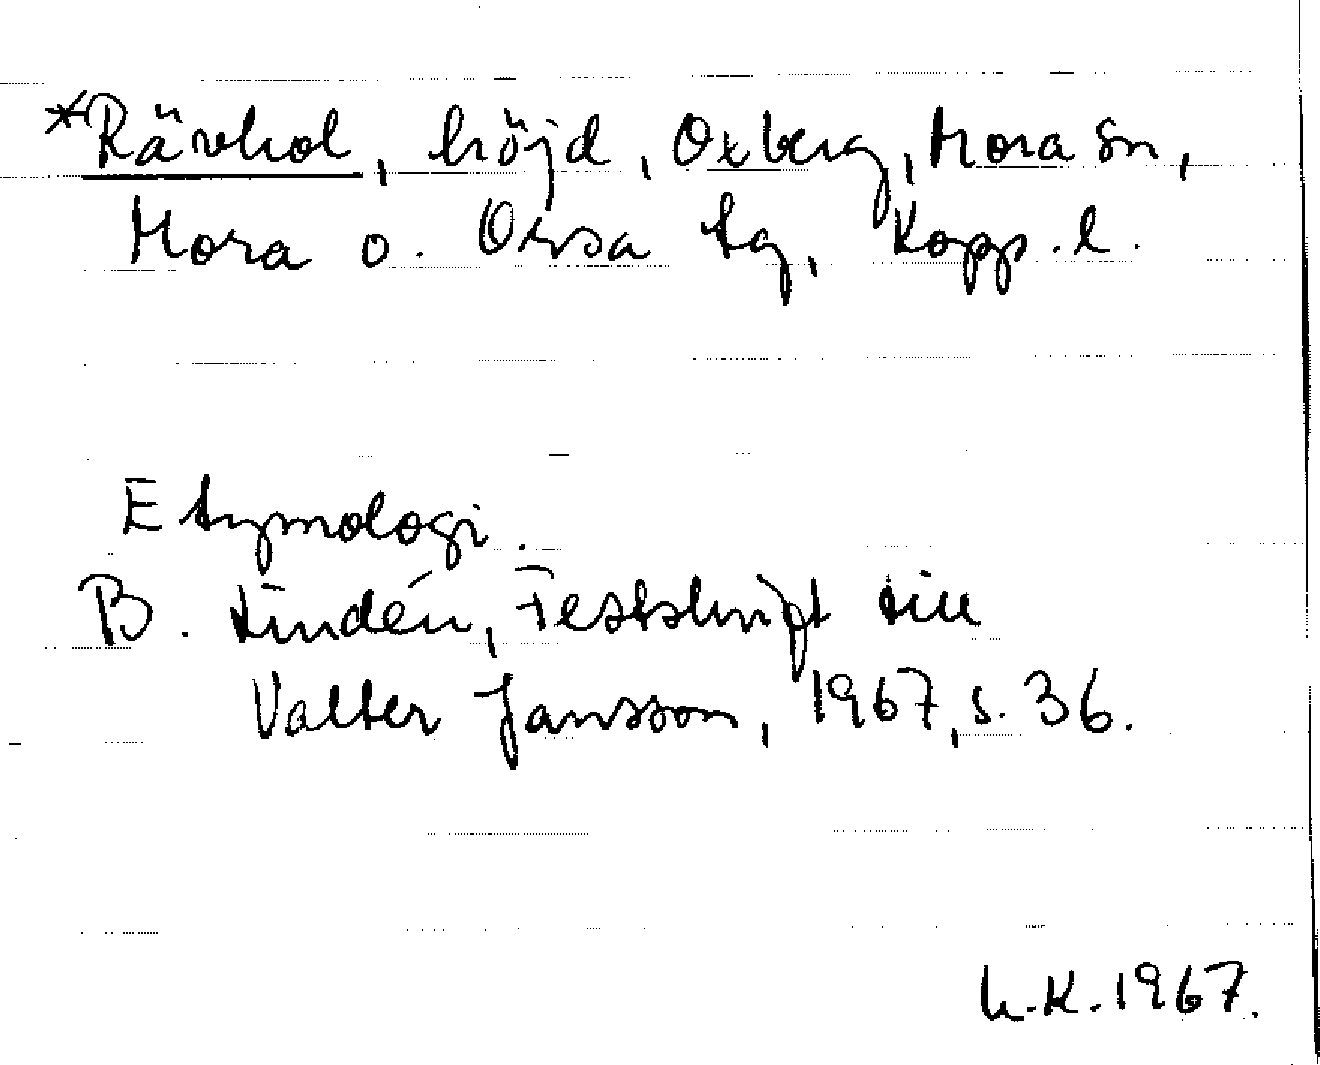 *Rävhol, höjd, Oxberg, Mora sn,
Mora o. Orsa tg, Kopp. l.
Etymologi.
B. Lindén, Festskrift till
Valter Jansson, 1967, s. 36.
L.K. 1967.